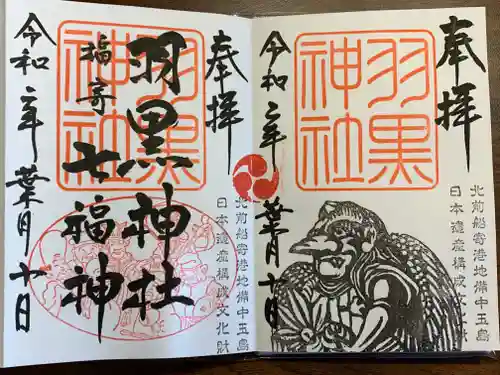 奉拝
北前船寄港地備中玉島
日本遺産構成文化財
羽黒神社
令和二年
葉月十日
奉拝
北前船寄港地備中玉島
日本遺産構成文化財
羽黒神社
羽黒神社
福寄
七福神
令和二年
葉月十日